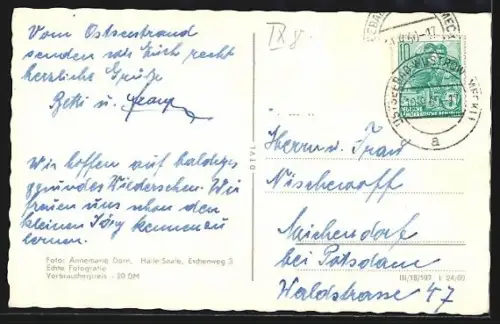 Vom Ostseestrand
senden wir Euch recht
herzliche Grüße
Betti u.
Wir hoffen auf baldiges
gesundes Wiedersehen. Wir
freuen uns schon den
kleinen Jörg kennenzu
lernen.
Foto: Annemarie Dorn, Halle-Saale, Eschenweg 3
Echte Fotografie
Verbraucherpreis - 20 DM
IX 8
1410
10
OSTSEEBAD WUSTROW (MECKL)
a
Herrn u. Frau
Michendorf
bei Potsdam
III/18/197 I 24/60
Waldstrasse 47